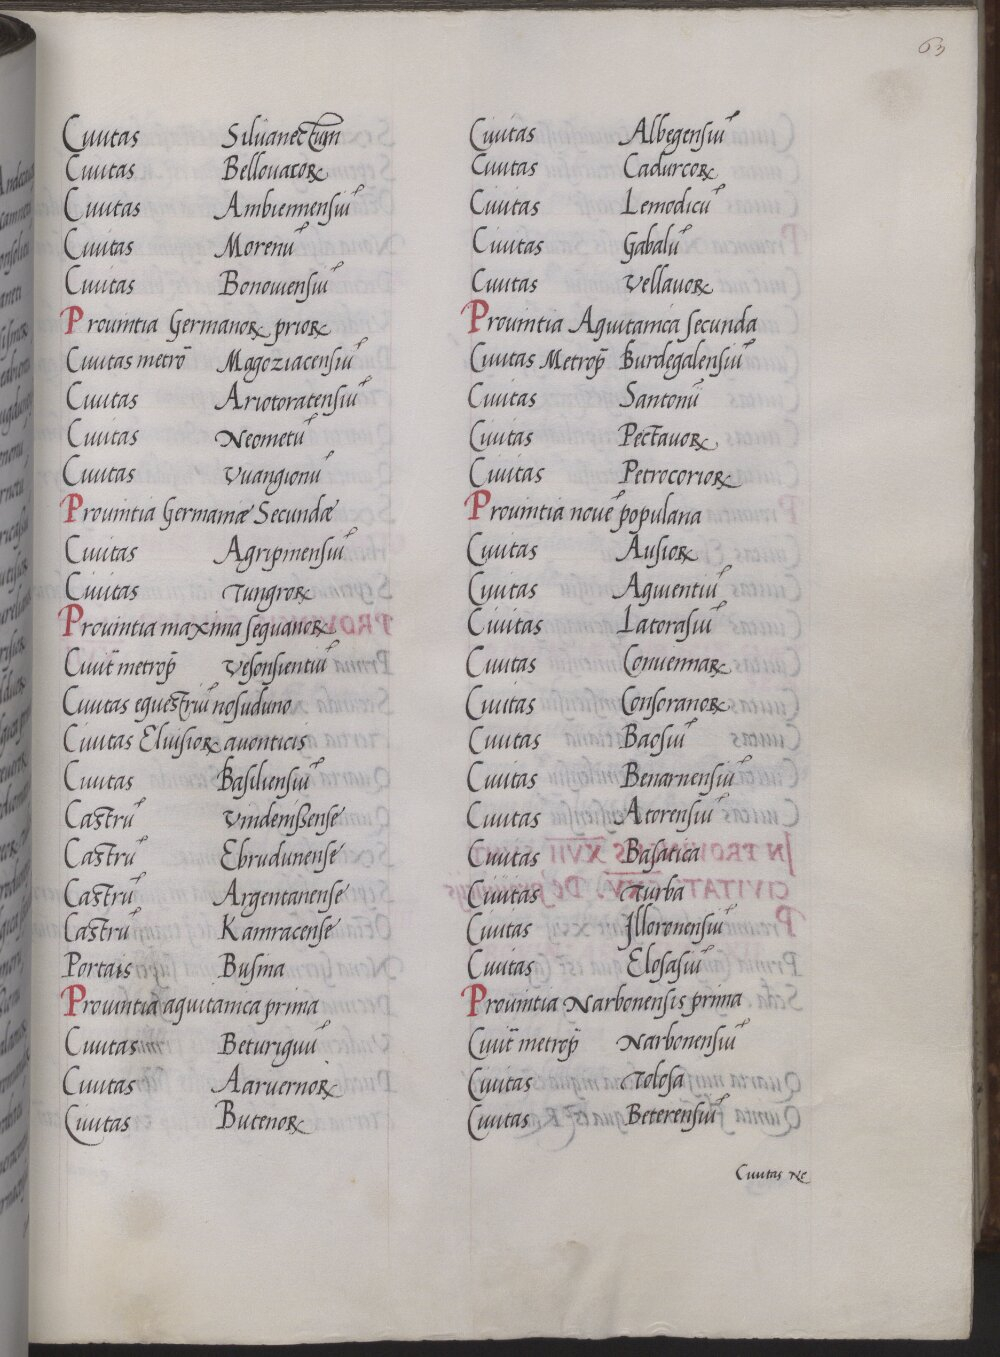 63
Ciuitas Siluanectum
Ciuitas Bellouacoꝝ
Ciuitas Ambiennensiū
Ciuitas Morenū
Ciuitas Bonouiensiū
Prouintia Germanoꝝ prioꝝ
Ciuitas metrō Mogoziacensiū
Ciuitas Ariotoratensiū
Ciuitas Neometū
Ciuitas Vuangionū
Prouintia Germaniæ Secundæ
Ciuitas Agripinensiū
Ciuitas Tungroꝝ
Prouintia maxima sequanoꝝ
Ciuit̄ metrop̄ Vesonsientiū
Ciuitas equestriū nosuduno
Ciuitas Eluisioꝝ auonticis
Ciuitas Basiliensiū
Castrū Vindenissense
Castrū Ebrudunense
Castrū Argentanense
Castrū Kamracense
Portais Busina
Prouintia aquitanica prima
Ciuitas Beturiguū
Ciuitas Aaruernoꝝ
Ciuitas Butenoꝝ
Ciuitas Albegensiū
Ciuitas Cadurcoꝝ
Ciuitas Lemodicū
Ciuitas Gabalū
Ciuitas Vellauoꝝ
Prouintia Aquitanica secunda
Ciuitas Metrop̄ Burdegalensiū
Ciuitas Santonū
Ciuitas Pectauoꝝ
Ciuitas Petrocorioꝝ
Prouintia nouē populana
Ciuitas Ausioꝝ
Ciuitas Aquientiū
Ciuitas Latorasiū
Ciuitas Conuennaꝝ
Ciuitas Consoranoꝝ
Ciuitas Baosiū
Ciuitas Benarnensiū
Ciuitas Atorensiū
Ciuitas Basatica
Ciuitas Turba
Ciuitas Illoronensiū
Ciuitas Elosasiū
Prouintia Narbonensis prima
Ciuit̄ metrop̄ Narbonensiū
Ciuitas Tolosa
Ciuitas Beterensiū
Ciuitas Ne